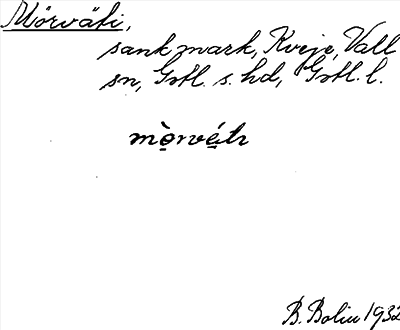 Mörväti,
sank mark, Kveje, Vall
sn, Gotl. s. hd, Gotl. l.
mò̱rvé̱tɪ
B. Bolin 1932